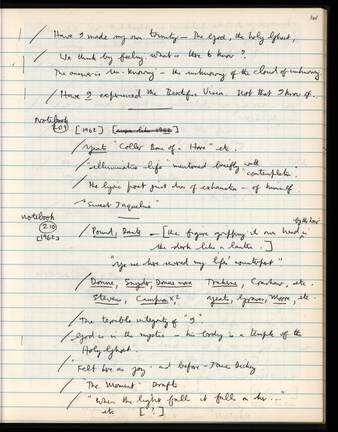 101
/ Have I made my own trinity – The God, the Holy Ghost,
/ We think by feeling what is there to know?
The answer is un-knowing – the unknowing of the cloud of unknowing
/ Have I experienced the Beatific Vision. Not that I know of.
Notebook
209 [1962]
/ Yeats "Collar Bone of a Hare" etc.
/ "illuminative life" mentioned briefly with contemplative
/ The lyric poet just dies of exhaustion – of himself
/ "Sweet Jaqueline"
Notebook
(210) / Pound, Dante – [the figure gripping it own head by the hair
[1962] the dark like a lantern.]
"Ye who have served my life's counterpart"
/ Donne, Snyder, Donne more Traherne, Crashaw, etc.
Stevens, Campion x2, Yeats, Graves, Moore, etc.
/ The terrible integrity of "I"
/ God is in the mystic – his body is a temple of the
Holy Ghost.
/ "Felt love as joy" and before – Jane Deckey
/ "The Moment" Drafts
/ "When the light falls it falls on her..."
etc [?]